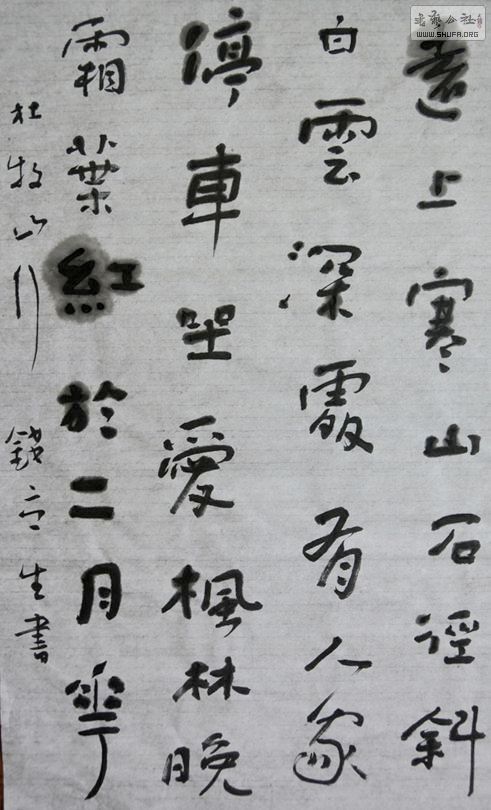 遠上寒山石徑斜
白雲深處有人家
停車坐愛楓林晚
霜葉紅於二月花
杜牧山行 錢生書
书艺公社
WWW.SHUFA.ORG